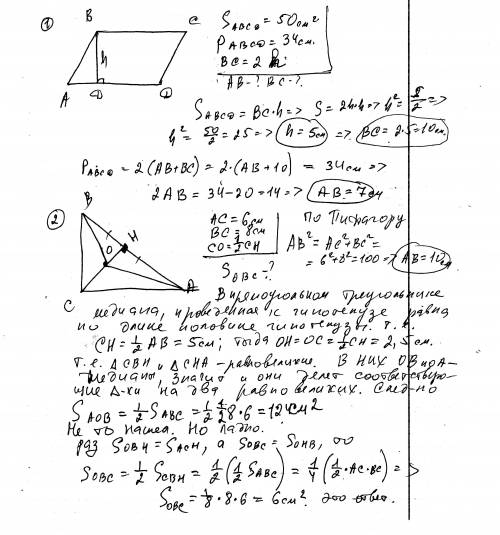 1
B C
h
A D D
S ABCD = 50 см²
P ABCD = 34 см.
BC = 2 h
AB-? BC-?
S ABCD = BC·h => S = 2h·h => h² = S/2 =>
h² = 50/2 = 25 => h = 5см => BC = 2·5 = 10см.
P ABCD = 2(AB+BC) = 2·(AB+10) = 34см =>
2AB = 34-20 = 14 => AB = 7см
2
B
H
O
C A
AC = 6см
BC = 8см
CO = ½CH
S OBC-?
По Пифагору
AB² = AC² + BC² =
= 6² + 8² = 100 => AB = 10см
В прямоугольном треугольнике
медиана, проведенная к гипотенузе равна
по длине половине гипотенузы. т.е.
CH = ½ AB = 5см; тогда OH = OC = ½CH = 2,5см.
т.е. △CBH и △CHA - равновеликие. В них OB и OA-
медианы, значит и они делят соответствую-
щие △-ки на два равновеликих. След-но
S AOB = ½ S ABC = ½·½·8·6 = 12 см²
Не то нашел. Но ладно.
раз S CBH = S ACH, а S OBC = S OHB, то
S OBC = ½ S CBH = ½(½ S ABC) = ¼(½·AC·BC) =>
S OBC = ⅛·8·6 = 6см². это ответ.